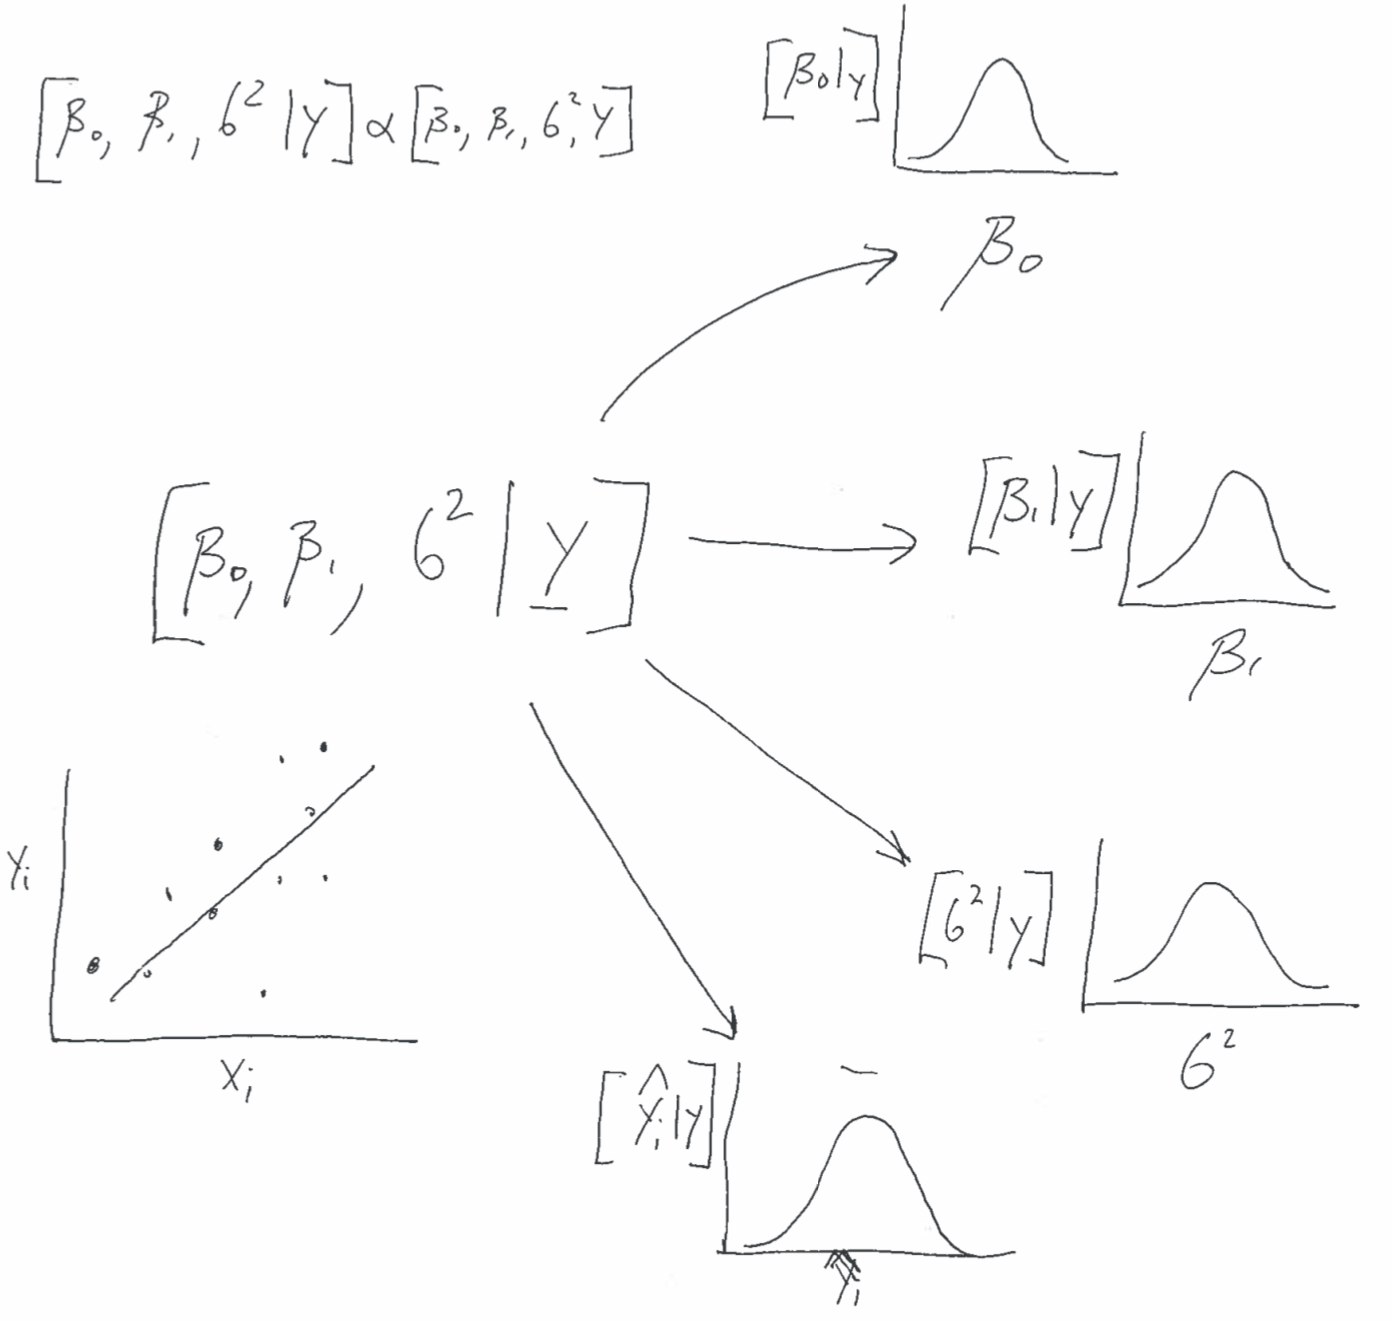 [β₀, β₁, σ² | y] ∝ [β₀, β₁, σ², y]
[β₀ | y]
β₀
[β₀, β₁, σ² | y]
[β₁ | y]
β₁
yᵢ
xᵢ
[σ² | y]
σ²
[ŷᵢ | y]